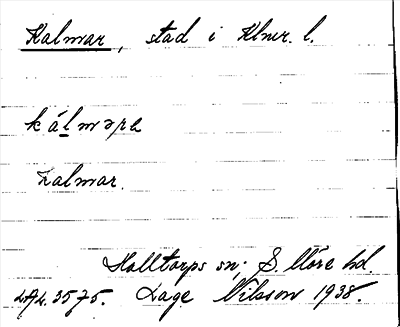 Kalmar, stad i Klmr. l.
kálməɲ
Kalmar.
Halltorps sn; S. Möre hd.
LAL. 3575. Lage Nilsson 1938.